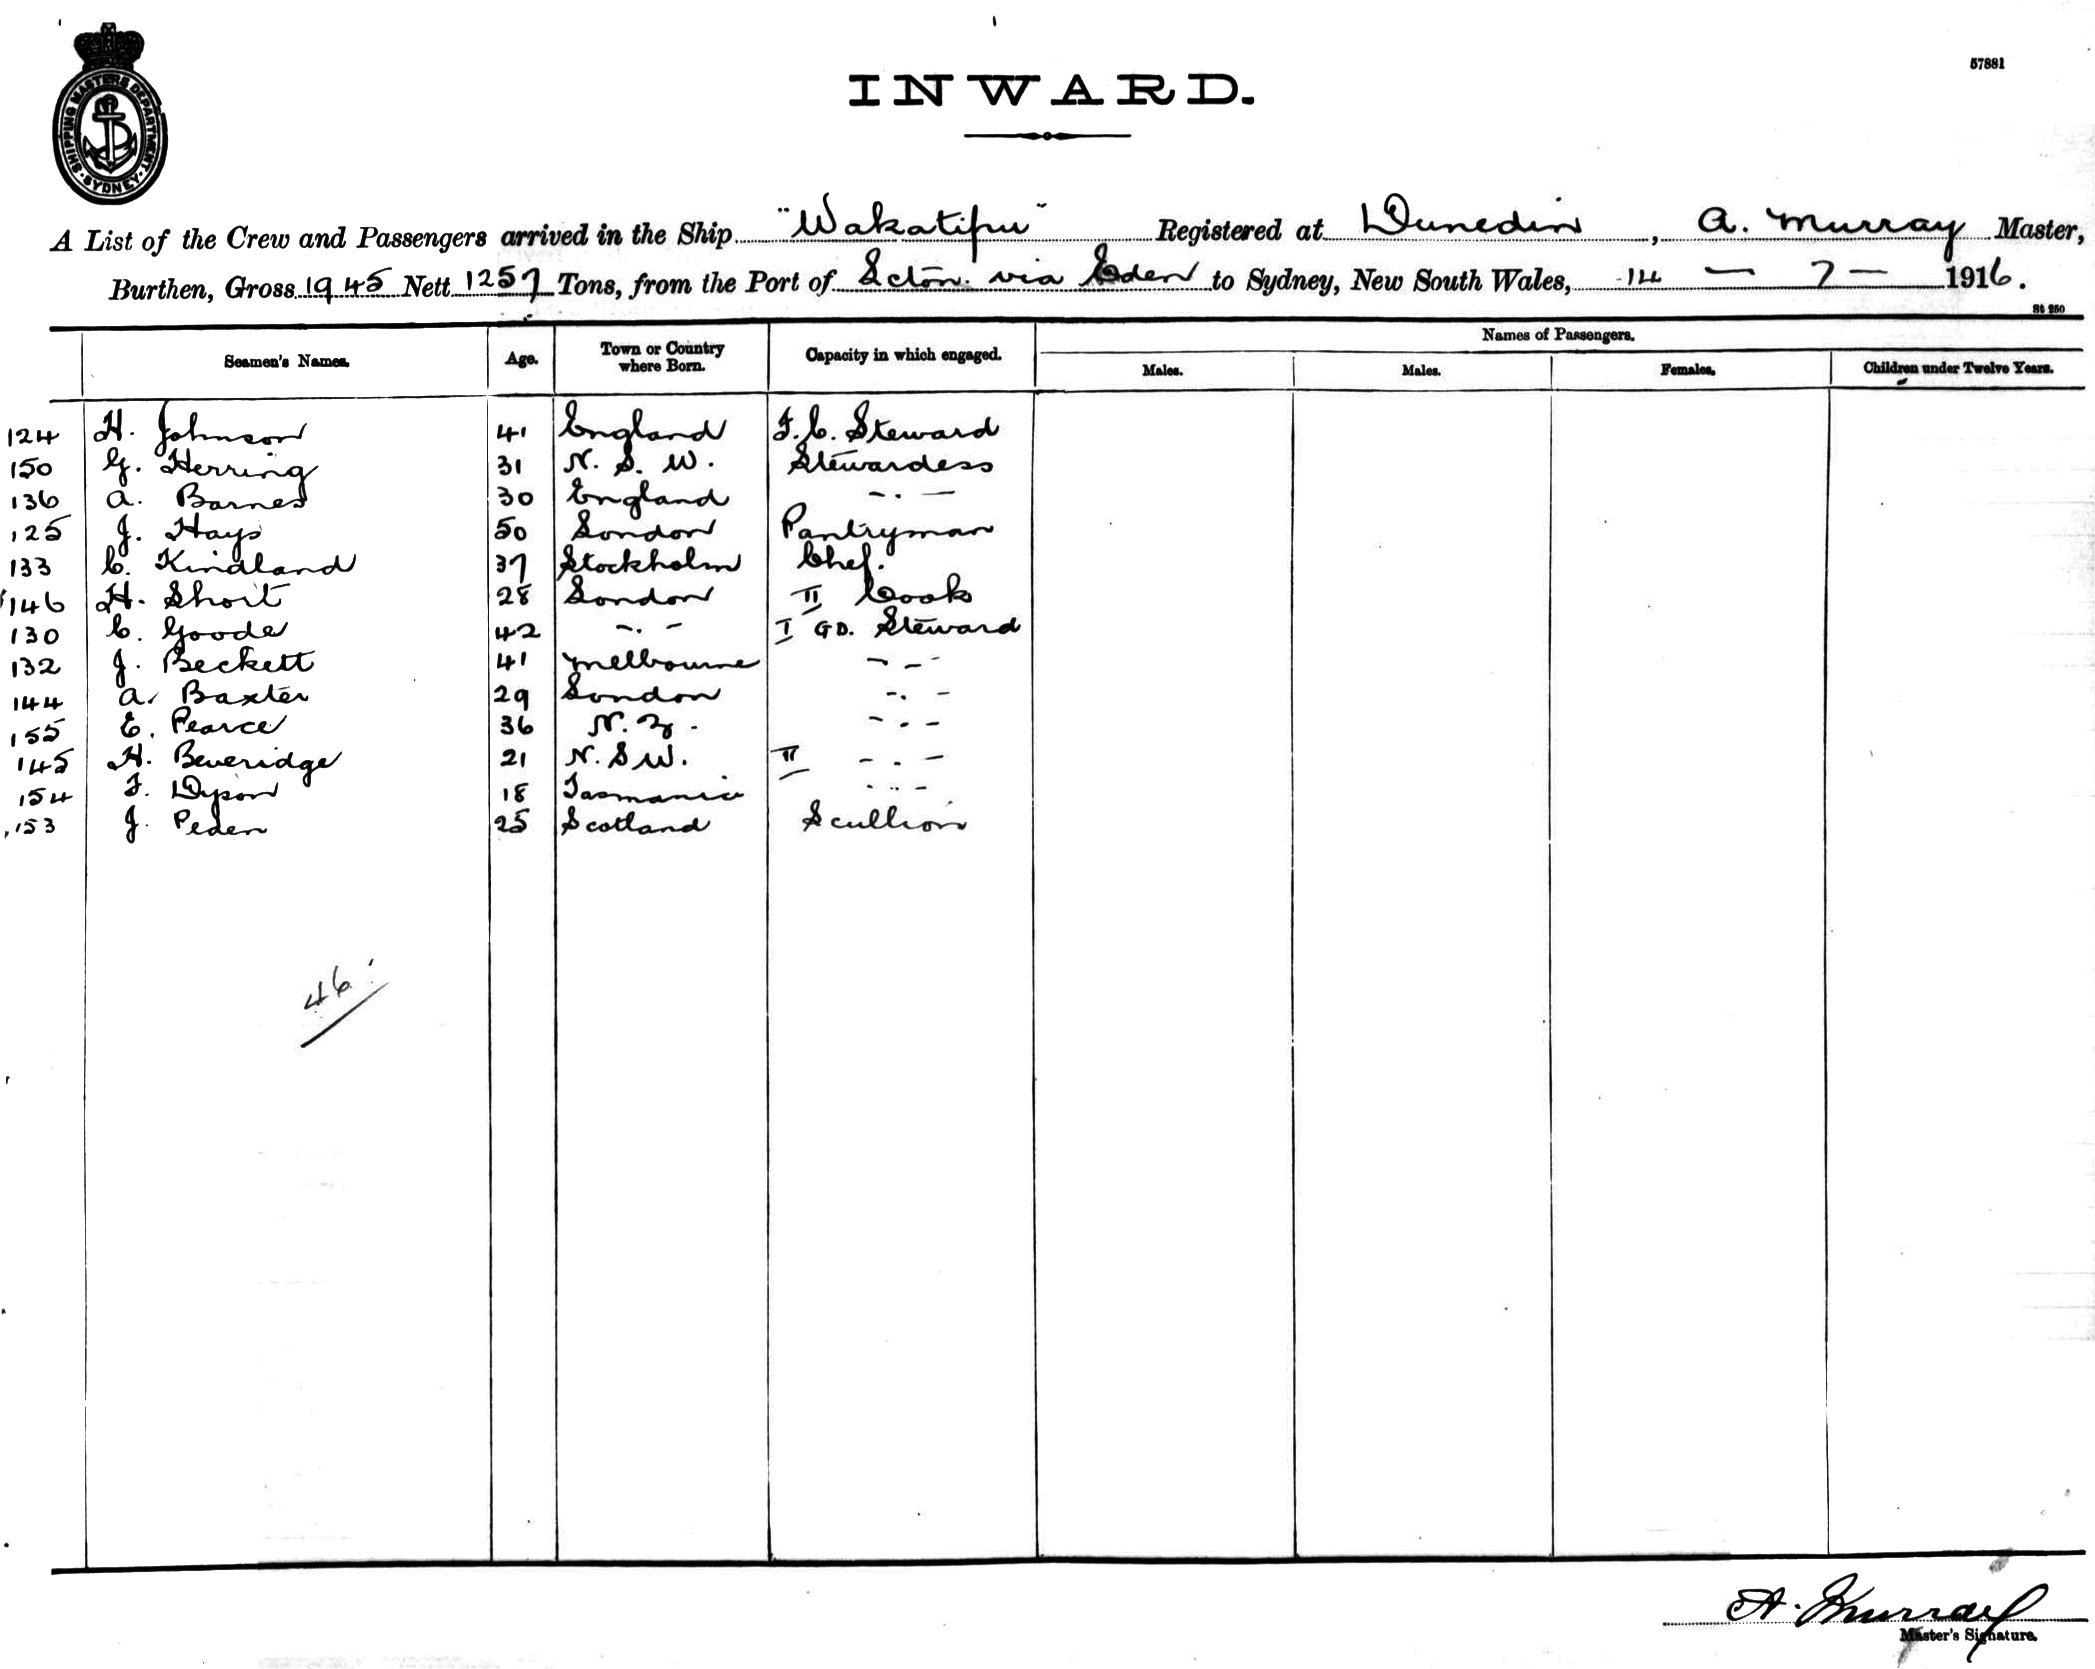 SHIPPING MASTERS DEPARTMENT · SYDNEY ·
57881
INWARD.
A List of the Crew and Passengers arrived in the Ship "Wakatipu" Registered at Dunedin, A. Murray Master,
Burthen, Gross 1945 Nett 1257 Tons, from the Port of Lcton. via Eden to Sydney, New South Wales, 14 — 7 — 1916.
St 250
Names of Passengers.
Seamen's Names. Age. Town or Country where Born. Capacity in which engaged. Males. Males. Females. Children under Twelve Years.
124 H. Johnson 41 England F.C. Steward
150 G. Herring 31 N.S.W. Stewardess
136 A. Barnes 30 England -.-
125 J. Hays 50 London Pantryman
133 C. Kindland 37 Stockholm Chef.
146 H. Short 28 London II Cook
130 C. Goode 42 -.- I GD. Steward
132 J. Beckett 41 Melbourne -.-
144 A. Baxter 29 London -.-
155 E. Pearce 36 N.Z. -.-
145 H. Beveridge 21 N.S.W. II -.-
154 F. Dyson 18 Tasmania -.-
153 J. Peden 25 Scotland Scullion
46
A. Murray
Master's Signature.